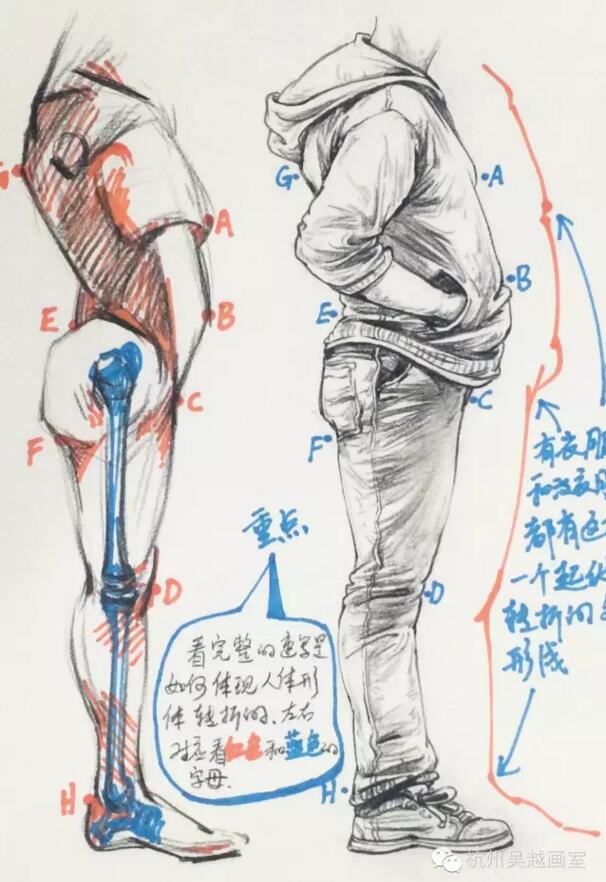 A
B
E
C
F
D
H
G
A
B
E
C
F
D
H
重点
看完整的速写是
如何体现人体形
体转折的、左右
对应看红色和蓝色的
字母.
有衣服
和没衣服
都有这
一个起伏
转折的
形成
杭州吴越画室